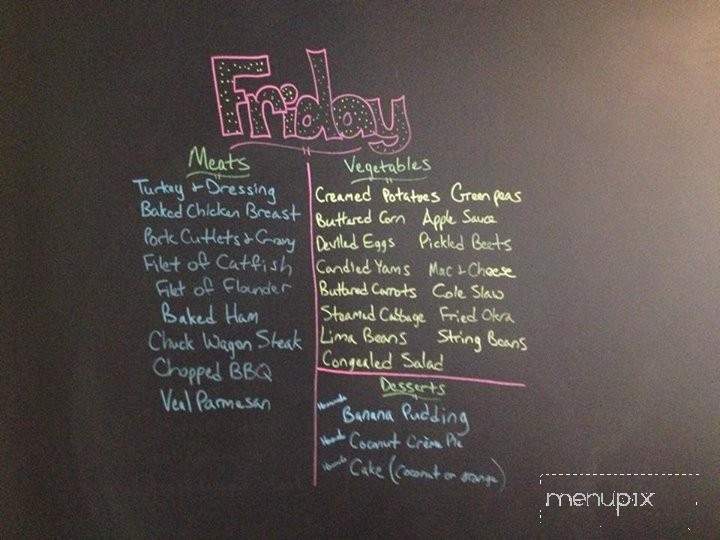 Friday
Meats
Turkey & Dressing
Baked Chicken Breast
Pork Cutlets & Gravy
Filet of Catfish
Filet of Flounder
Baked Ham
Chuck Wagon Steak
Chopped BBQ
Veal Parmesan
Vegetables
Creamed Potatoes Green peas
Buttered Corn Apple Sauce
Deviled Eggs Pickled Beets
Candied Yams Mac & Cheese
Buttered Carrots Cole Slaw
Steamed Cabbage Fried Okra
Lima Beans String Beans
Congealed Salad
Desserts
Homemade Banana Pudding
Coconut Crème Pie
Homemade Cake (coconut or orange)
menupix